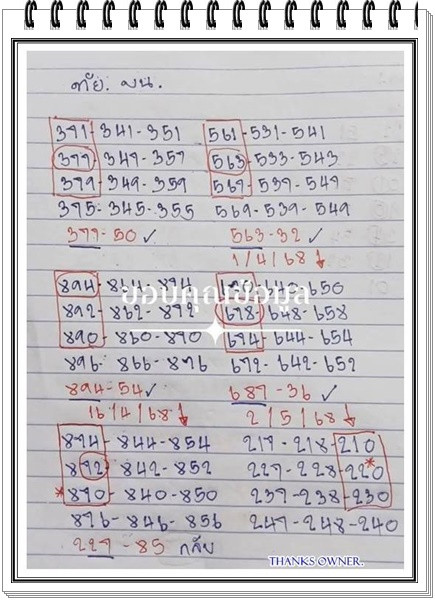 บน.
371-341-351 561-531-541
377-347-357 563-533-543
379-349-359 567-537-547
375-345-355 569-539-549
377-50 ✓ 563-32 ✓
1/4/68 ↓
894-864-874 670-640-650
ขอบคุณข้อมูล
892-862-872 678-648-658
890-860-870 674-644-654
896-866-876 672-642-652
894-54 ✓ 687-36 ✓
16/4/68 ↓ 2/5/68 ↓
874-844-854 217-218-210
872-842-852 227-228-220*
*870-840-850 237-238-230
876-846-856 247-248-240
227-85 กลับ
THANKS OWNER.